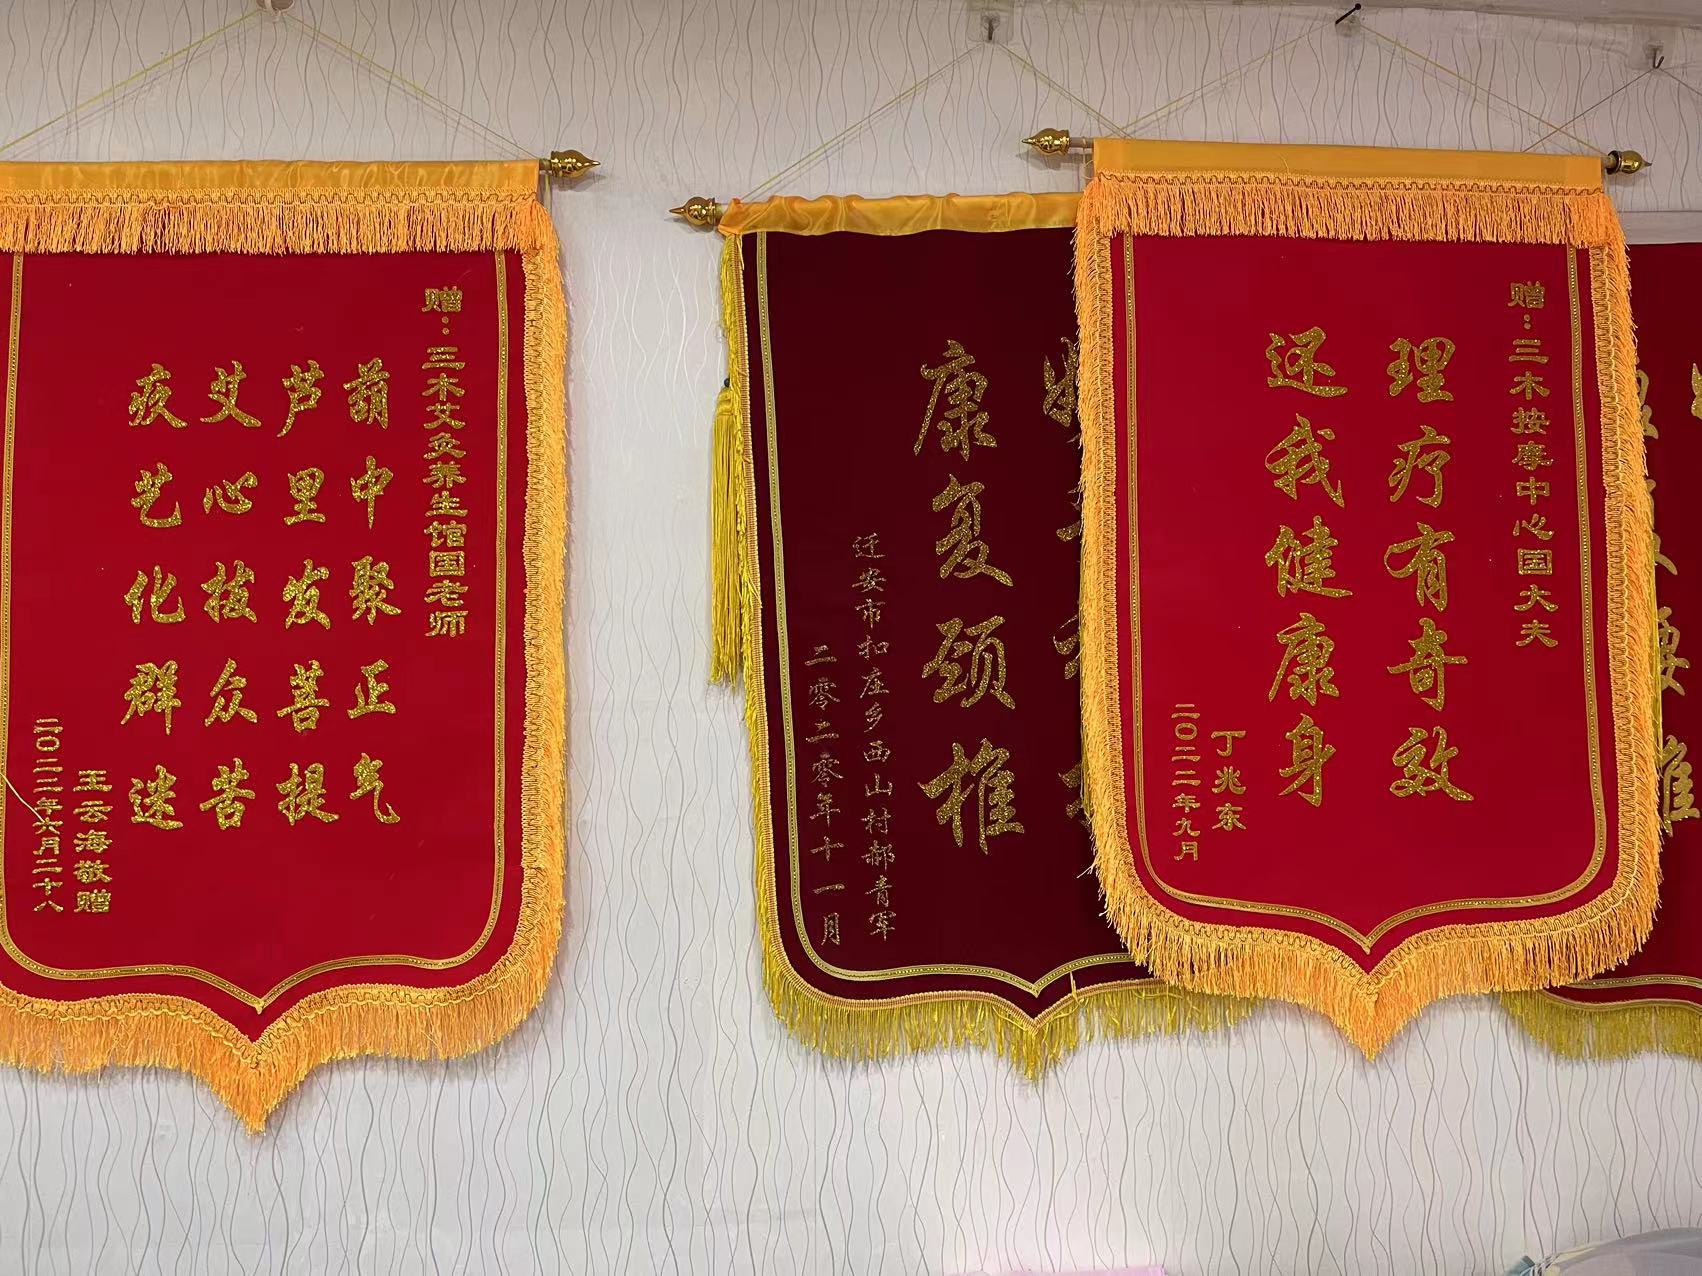 赠：三木艾灸养生馆国老师
葫中聚正气
芦里发菩提
艾心技众苦
疚艺化群迷
王云海敬赠
二〇二二年六月二十八
康复颈椎
迁安市扣庄乡西山村郝青军
二零二零年十一月
赠：三木按摩中心国大夫
理疗有奇效
还我健康身
丁兆东
二〇二二年九月